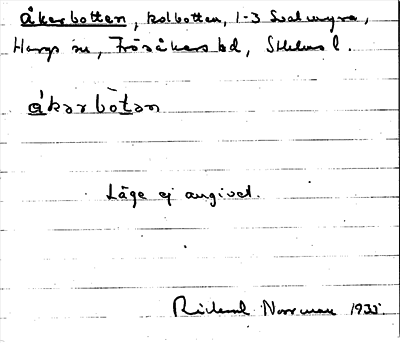 åkerbotten, kolbotten, 1-3 Svalmyra,
Hargs sn, Frösåkers hd, Sthlms l.
åkərbòtən
Läge ej angivet.
Rickard Norrman 1935.